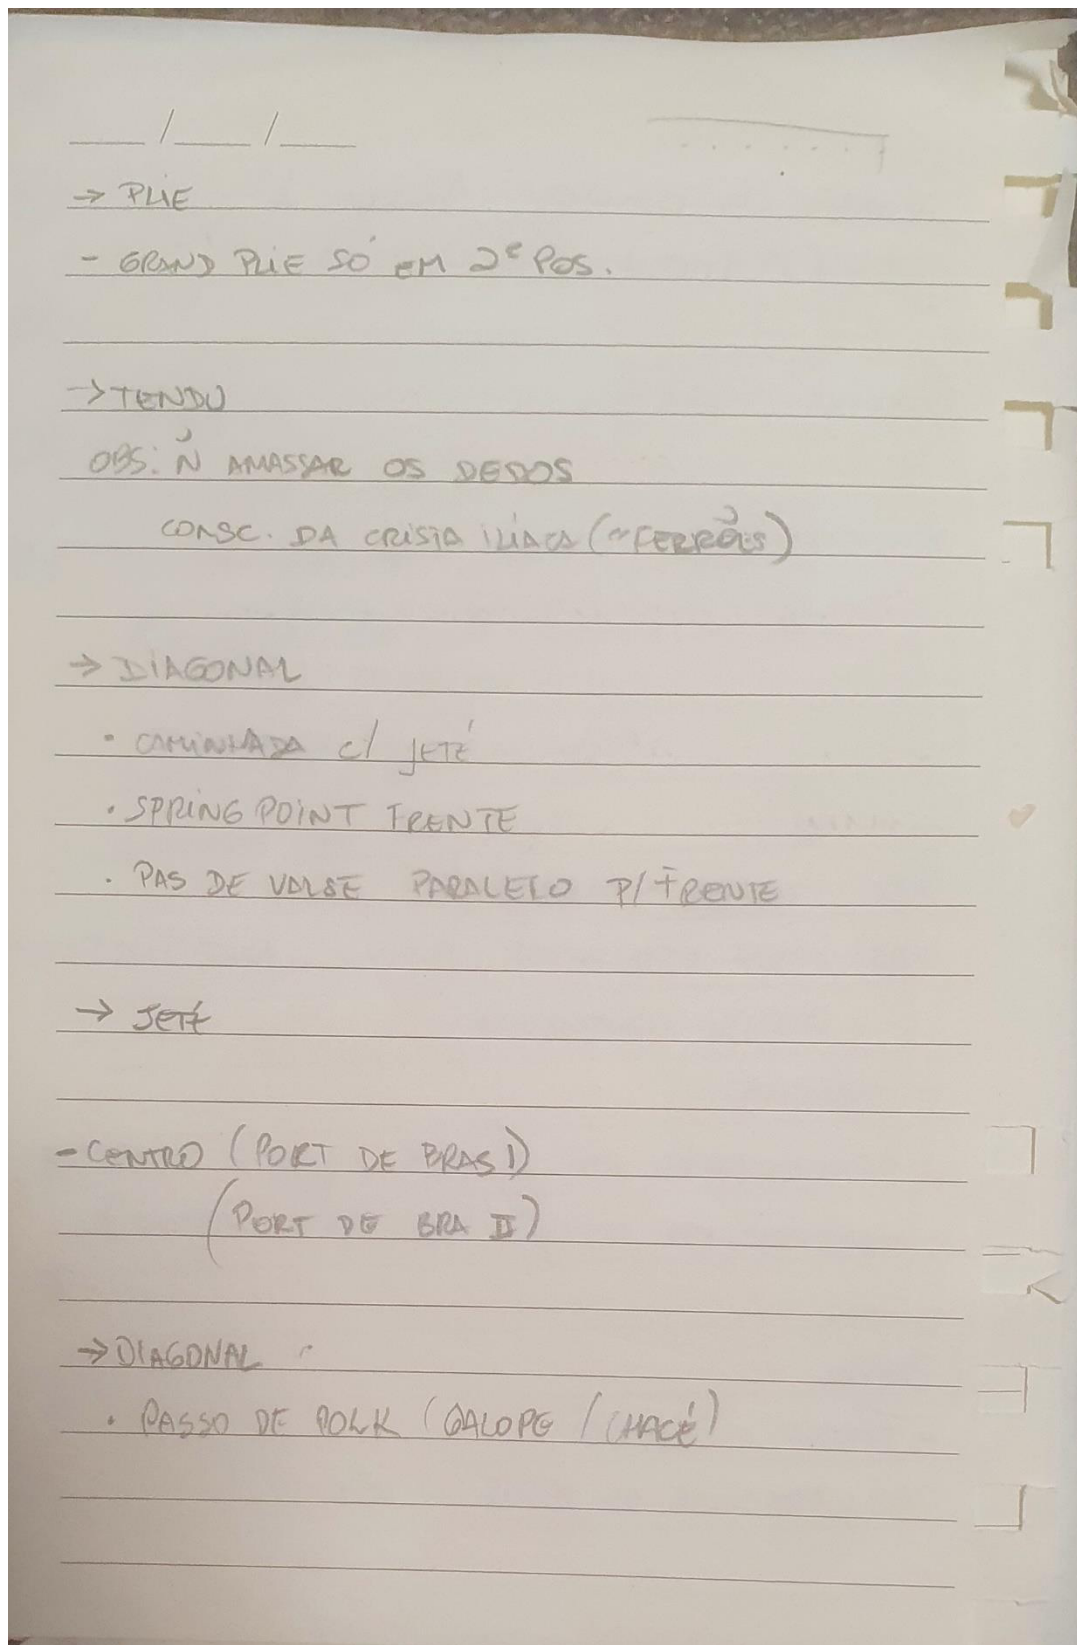 ___/___/___
→ PLIE
- GRAND PLIE SÓ EM 2ª POS.
→ TENDU
OBS: Ñ AMASSAR OS DEDOS
CONSC. DA CRISTA ILÍACA (
→ DIAGONAL
• CAMINHADA C/ JETÉ
• SPRING POINT FRENTE
• PAS DE VALSE PARALELO P/ FRENTE
→ JETÉ
- CENTRO (PORT DE BRAS I)
(PORT DE BRA II)
→ DIAGONAL
• PASSO DE POLK (GALOPE / CHACÉ)